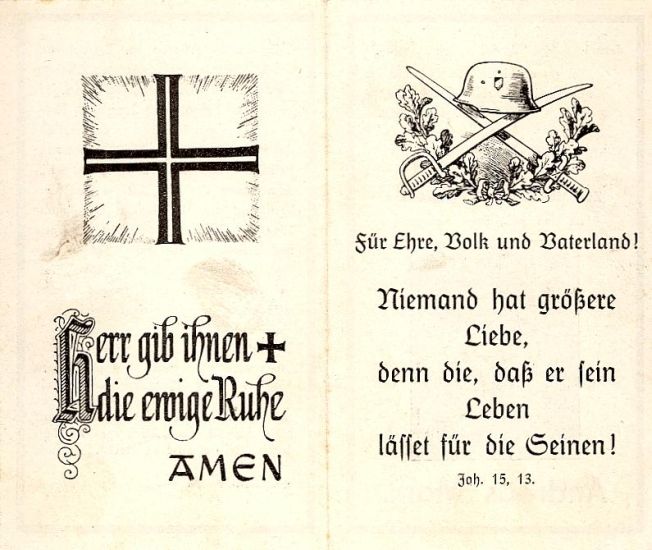 Herr gib ihnen
die ewige Ruhe
AMEN
Für Ehre, Volk und Vaterland!
Niemand hat größere
Liebe,
denn die, daß er sein
Leben
lässet für die Seinen!
Joh. 15, 13.